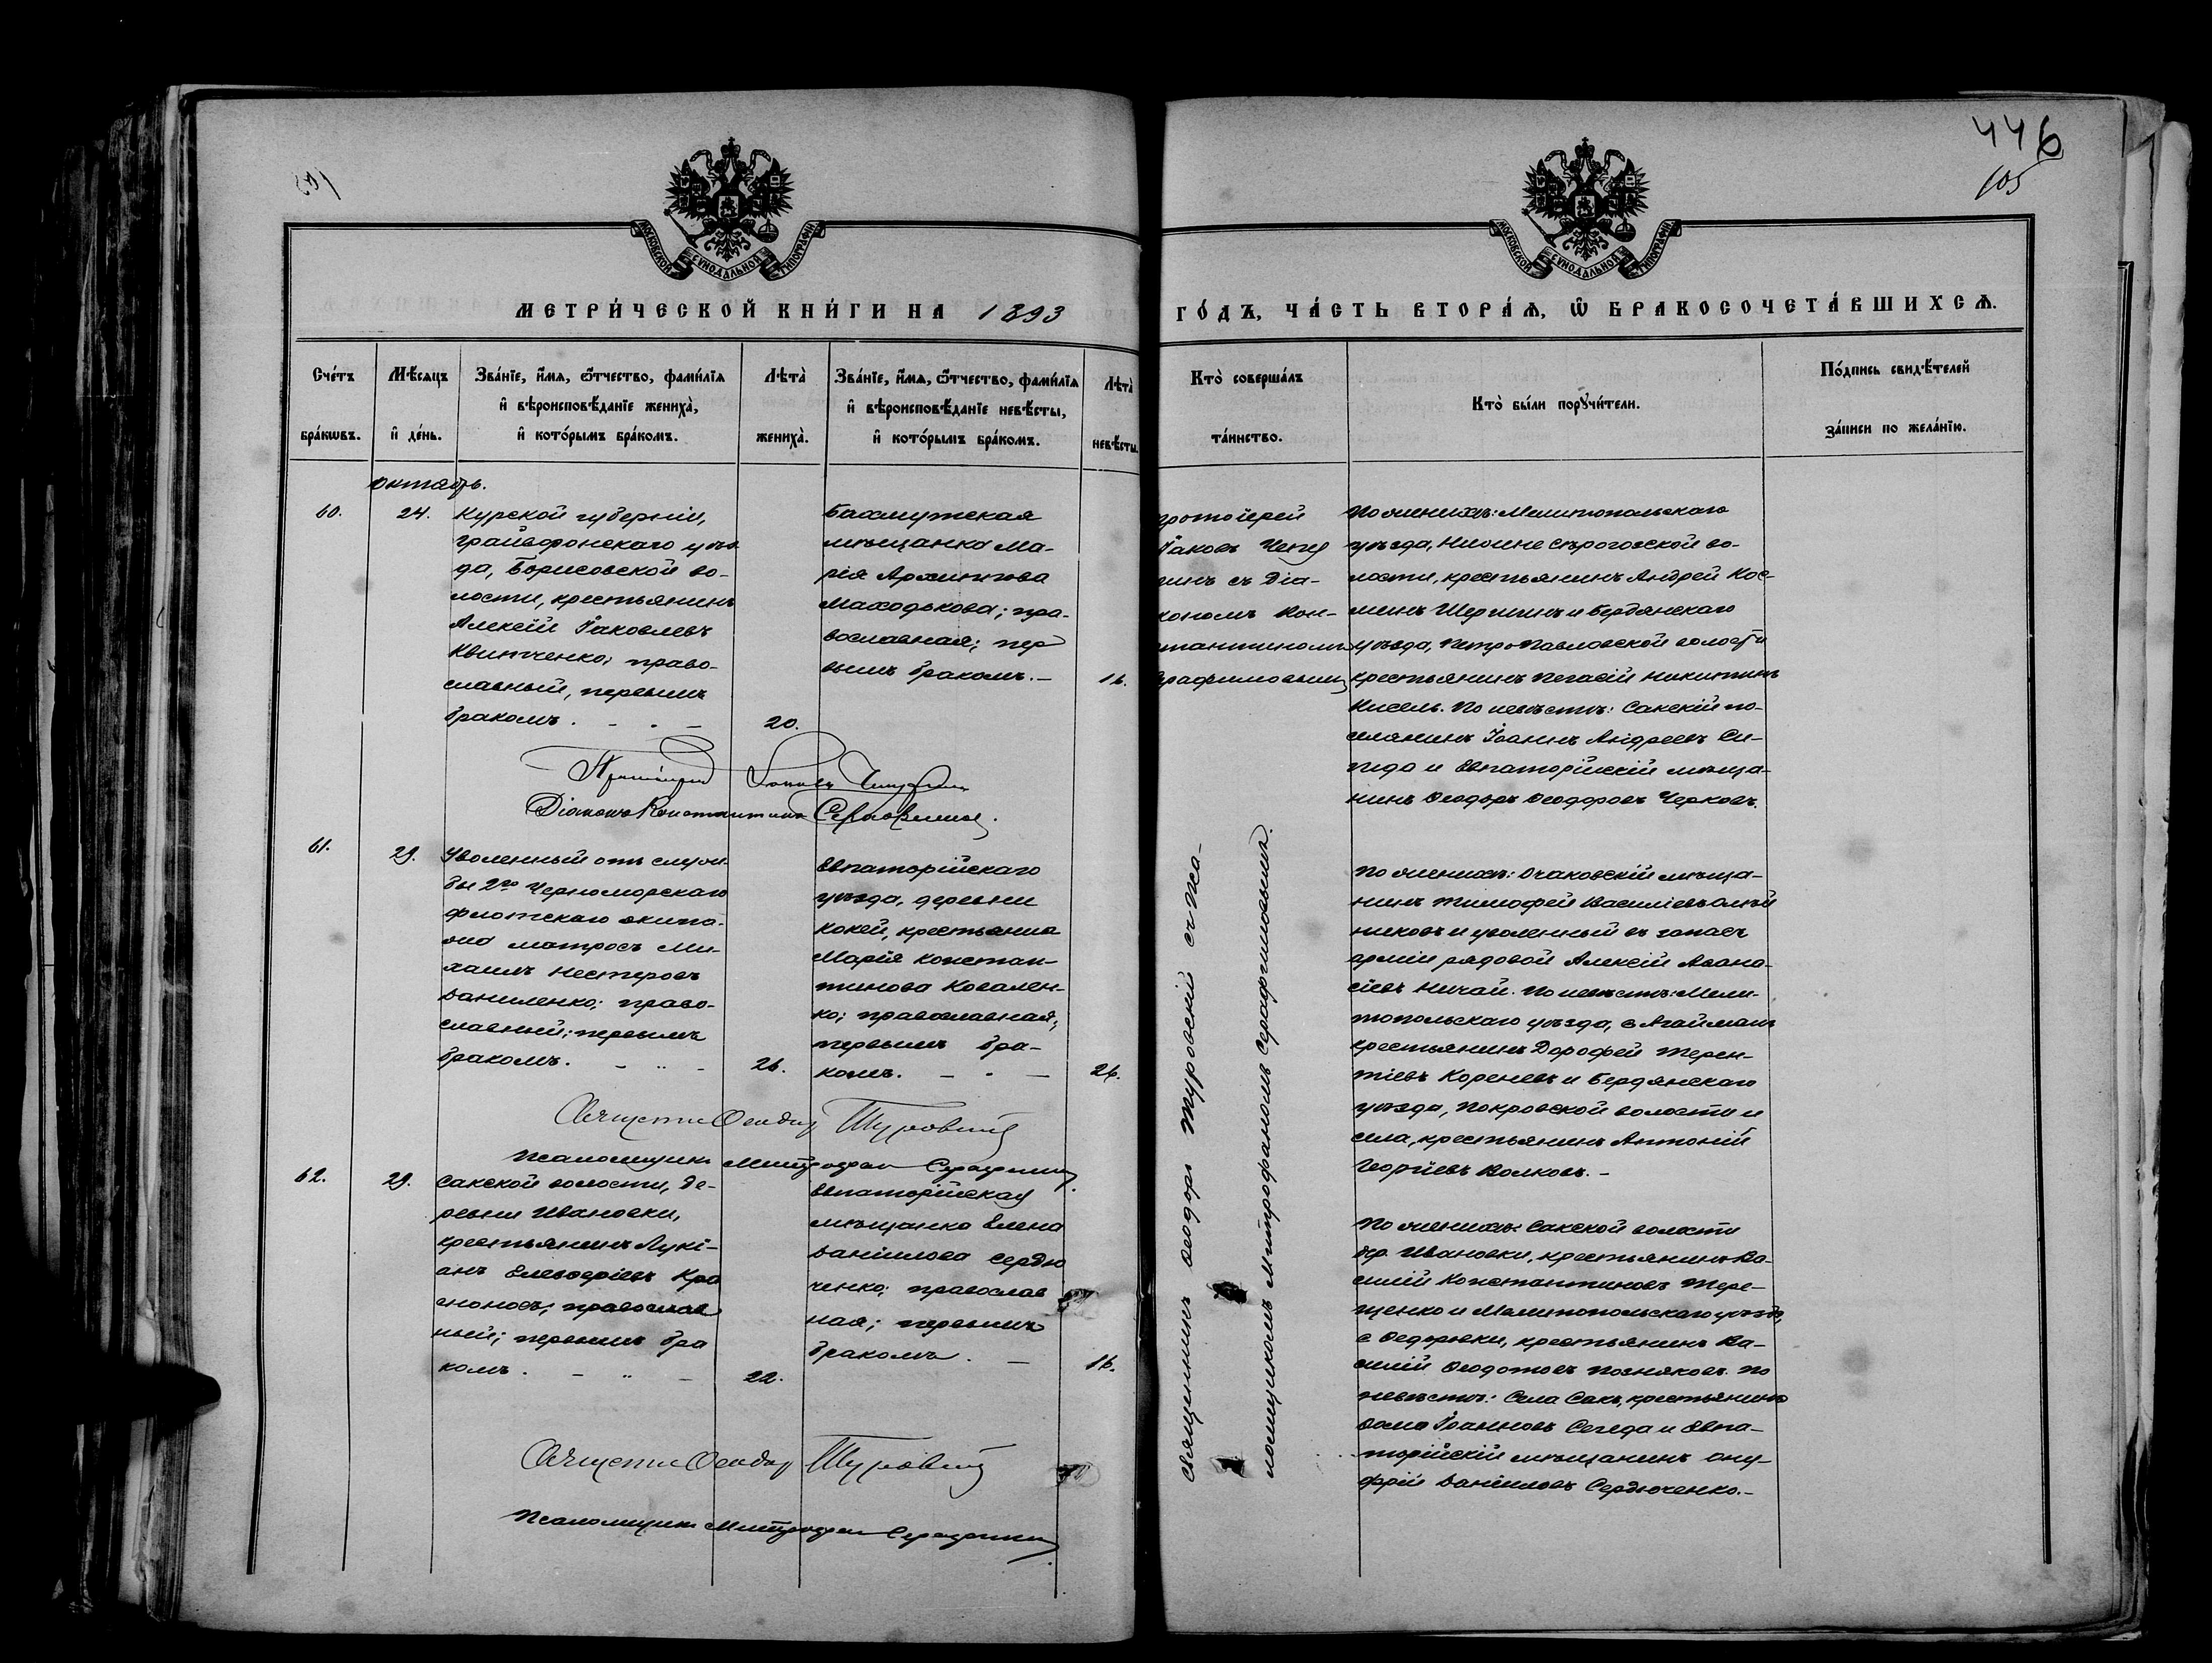 446
105
МОСКОВСКОЙ СѴНОДАЛЬНОЙ ТИПОГРАФІИ
МОСКОВСКОЙ СѴНОДАЛЬНОЙ ТИПОГРАФІИ
МЕТРИ́ЧЕСКОЙ КНИ́ГИ НА 1893
ГО́ДЪ, ЧА́СТЬ ВТОРА́Ѧ, Ѡ҆ БРАКОСОЧЕТА́ВШИХСѦ.
Сче́тъ бра́кѡвъ.
Мѣ́сѧцъ и҆ де́нь.
Зва́нїе, и҆́мѧ, ѻ҆́тчество, фами́лїѧ
и҆ вѣроисповѣ́данїе жениха̀,
и҆ кото́рымъ бра́комъ.
Лѣта̀ жениха̀.
Зва́нїе, и҆́мѧ, ѻ҆́тчество, фами́лїѧ
и҆ вѣроисповѣ́данїе невѣ́сты,
и҆ кото́рымъ бра́комъ.
Лѣта̀ невѣ́сты.
Кто̀ соверша́лъ
та́инство.
Кто̀ бы́ли порꙋчи́тели.
По́дпись свидѣ́телей
за́писи по жела́нїю.
октябрь.
60.
24.
Курской губерніи,
Грайворонскаго уѣз-
да, Борисовской во-
лости, крестьянинъ
Алексій Іаковлевъ
Квитченко; право-
славный, первымъ
бракомъ.
20.
Бахмутская
мѣщанка Ма-
рія Архиппова
Маходькова; пра-
вославная; пер
вымъ бракомъ. —
16.
протоіерей
Іаковъ Чепу
инъ съ діа-
кономъ Кон-
стантиномъ
Серафимовымъ
По женихѣ: Мелитопольскаго
уѣзда, Нижне Сѣрогозской во-
лости, крестьянинъ Андрей Кос-
минъ Шершинъ и Бердянскаго
уѣзда, Петро-Павловской волости
крестьянинъ Пегасій Никитинъ
Кисель. По невѣстѣ: Сакскій по-
селянинъ Іоаннъ Андреевъ Си-
гида и Евпаторійскій мѣща-
нинъ Ѳеодоръ Ѳеодоровъ Черковъ.
Протоіерей Іаковъ
Діаконъ Константинъ Серафимовъ.
61.
29.
Уволенный отъ служ-
бы 2го Черноморскаго
флотскаго экипа-
жа матросъ Ми-
хаилъ Нестеровъ
Даниленко; право-
славный; первымъ
бракомъ.
26.
Евпаторійскаго
уѣзда, деревни
Кокей, крестьянка
Марія Констан-
тинова Ковален-
ко; православная;
первымъ бра-
комъ.
26.
Священникъ Ѳеодоръ Туровскій съ пса-
ломщикомъ Митрофаномъ Серафимовымъ.
По женихѣ: Очаковскій мѣща-
нинъ Тимофей Васильевъ
никовъ и уволенный въ запасъ
арміи рядовой Алексій Аѳана-
сіевъ Ничай. По невѣстѣ: Мели-
топольскаго уѣзда, с Агайманъ
крестьянинъ Дорофей Терен-
тіевъ Кореневъ и Бердянскаго
уѣзда, Покровской волости и
села, крестьянинъ Антоній
Георгіевъ Волковъ. —
Священникъ Ѳеодоръ Туровскій
Псаломщикъ Митрофанъ Серафимовъ.
62.
29.
Сакской волости, де-
ревни Ивановки,
крестьянинъ Лукі-
анъ Елевѳеріевъ Кра
сноносъ; православ
ный; первымъ бра
комъ.
22.
Евпаторійская
мѣщанка Елена
Даніилова Сердю
ченко; православ
ная; первымъ
бракомъ. —
16.
По женихѣ: Сакской волости
дер. Ивановки, крестьянинъ Ва-
силій Константиновъ Тере-
щенко и Мелитопольскаго уѣзда,
с Ѳедоровки, крестьянинъ Ва-
силій Ѳеодотовъ Позняковъ. По
невѣстѣ: Села Сакъ, крестьянинъ
Іоанновъ Сегеда и Евпа-
торійскій мѣщанинъ Ону-
фрій Даніиловъ Сердюченко. —
Священникъ Ѳеодоръ Туровскій
Псаломщикъ Митрофанъ Серафимовъ.